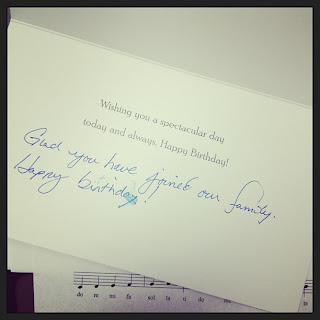 Wishing you a spectacular day
today and always, Happy Birthday!
Glad you have joined our family.
Happy birthday!
do re mi fa sol la ti do